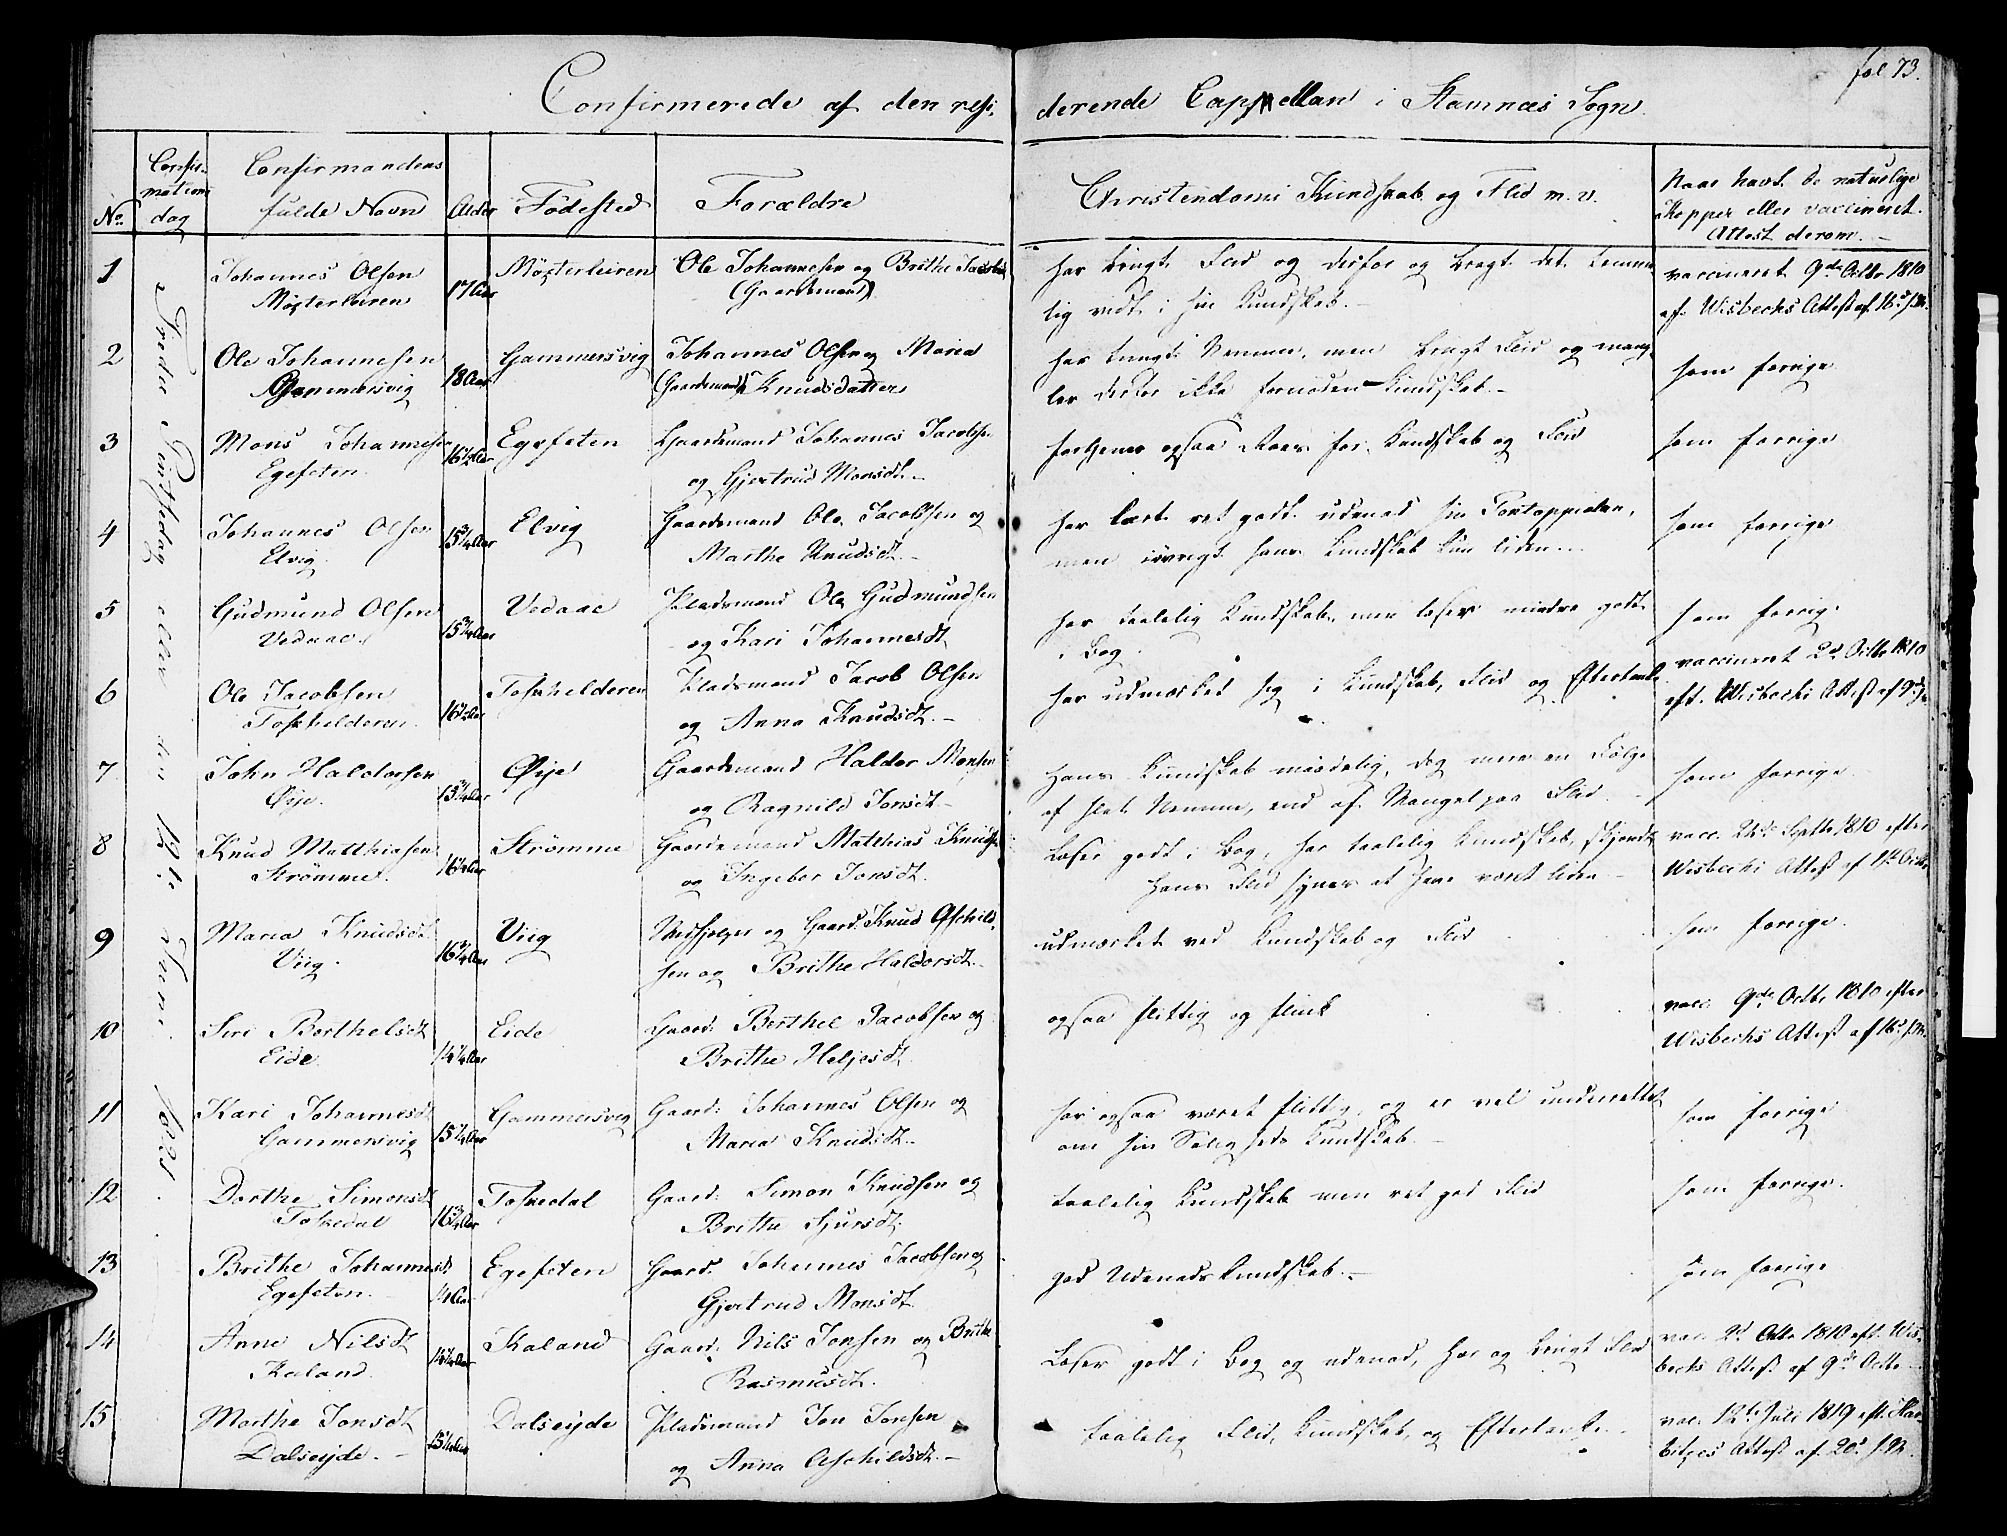 fol 73.
Confirmerede af den resi-
derende Cappellan i Stamnæs Sogn.
No
Confir-
mations
dag
Confirmandens
fulde Navn
Alder
Fødested
Forældre
Christendoms Kundskab og Flid m. v.
Naar havt de naturlige
Kopper eller vaccineret.
Attest derom.
Tredie Pintsedag eller den 12te Juni 1821.
1
Johannes Olsen
Møsterleiren
17 Aar
Møsterleiren
Ole Johannesen og Brithe
(Gaardemand)
har brugt Flid og derfor og bragt det temme-
lig vidt i sin Kundskab.
vaccineret 9de Octbr 1810
af. Wisbechs Attest af 16d s.M.
2
Ole Johannesen
Gammersvig
18 Aar
Gammersvig
Johannes Olsen og Maria
(Gaardemand) Knudsdatter
har tungt Nemme, men brugt Flid og mang-
ler derfor ikke fornøden Kundskab.-
som forrige
3
Mons Johannesen
Egeseten
16½ Aar
Egeseten
Gaardemand Johannes Jacobsen
og Gjertrud Monsdt.
fortjener ogsaa Roes for Kundskab og Flid
som forrige
4
Johannes Olsen
Elvig
15¾ Aar
Elvig
Gaardemand Ole Jacobsen og
Marthe Knudsdt.
har lært ret godt udenad sin Pontoppidan,
men iøvrigt hans Kundskab kun liden.
som forrige
5
Gudmund Olsen
Vedaae
15¾ Aar
Vedaae
Pladsmand Ole Gudmundsen
og Kari Johannesdt.
har taalelig Kundskab, men læser mindre godt
i Bog.
som forrige
6
Ole Jacobsen
Toskhelderen
16½ Aar
Toskhelderen
Pladsmand Jacob Olsen
og Anna Knudsdt.
har udmærket sig i Kundskab, Flid og Eftertanke
vaccineret 2d Octbr 1810
eft. Wisbechs Attest af 9d
7
John Haldorsen
Øye
15¾ Aar
Øye
Gaardemand Haldor Monsen
og Ragnild Jonsdt.
Hans Kundskab maadelig, dog mere en Følge
af slet Nemme, end af Mangel paa Flid.
som forrige
8
Knud Matthiasen
Strømme
16¼ Aar
Strømme
Gaardemand Matthias Knudsen
og Ingebor Jonsdt.
Læser godt i Bog, har taalelig Kundskab, skjøndt
hans Flid synes at have været liden
vacc. Septbr 1810 efter
Wisbechs Attest af 1ste Octbr
9
Maria Knudsdt
Viig
16¾ Aar
Viig
Medhjelper og Gaard: Knud Aschild-
sen og Brithe Haldorsdt.
udmærket ved Kundskab og Flid
som forrige
10
Siri Berthelsdt
Eide
14¼ Aar
Eide
Gaard: Berthel Jacobsen og
Brithe Heljesdt.
ogsaa flittig og flink
vacc. 9de Octbr 1810 efter
Wisbechs Attest af 16d s.M.
11
Kari Johannesdt
Gammersvig
15¼ Aar
Gammersvig
Gaard: Johannes Olsen og
Maria Knudsdt.
har ogsaa været flittig, og er vel underrettet
om sin Saligheds Kundskab.
som forrige
12
Dorthe Simonsdt
Toskedal
16¾ Aar
Toskedal
Gaard: Simon Knudsen og
Brithe Sjursdt.
taalelig Kundskab men ret god Flid
som forrige.
13
Brithe Johannesdt.
Egeseten
14 Aar
Egeseten
Gaard: Johannes Jacobsen og
Gjertrud Monsdt.
god Udenads Kundskab.
som forrige
14
Anne Nilsdt
Kaland
14¼ Aar
Kaland
Gaard: Nils Jonsen og Brithe
Rasmusdt.
Læser godt i Bog og udenad, har og brugt Flid
vac. 2d Octbr 1810 eft. Wis-
bechs Attest af 9de Octbr
15
Marthe Jonsdt
Dalseyde.
15¼ Aar
Dalseyde
Pladsmand Jon Jonsen
og Anna Aschildsdt.
taalelig Flid, Kundskab, og Eftertanke.
vac. 12te Juli 1819 eft. Har-
bitzes Attest af 20d s.M.